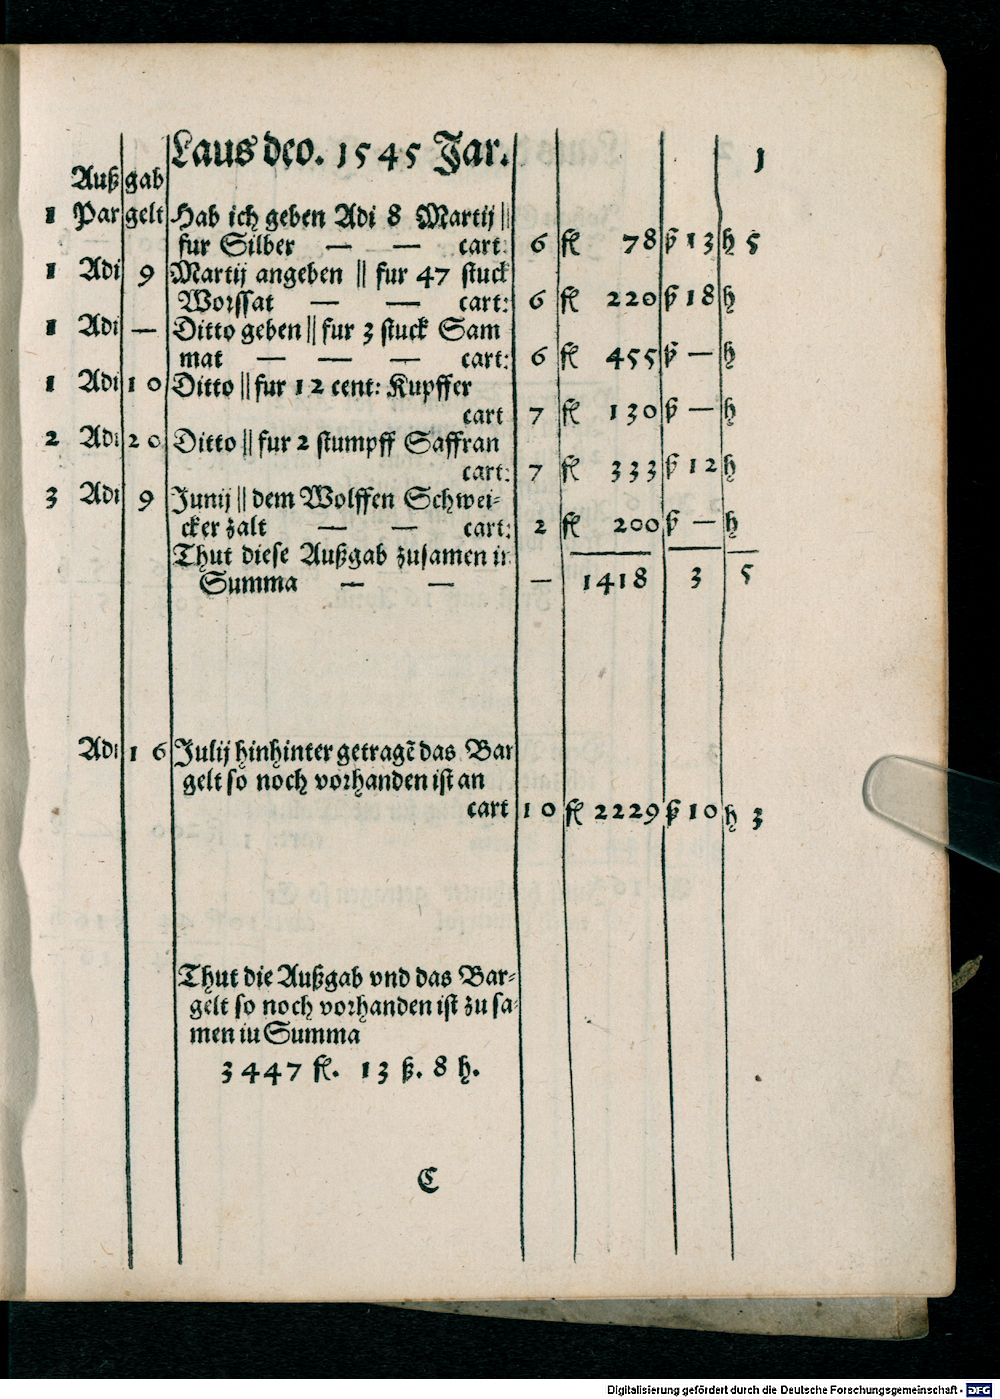 Laus deo. 1545 Jar. 1
Außgab
1 Pargelt Hab ich geben Adi 8 Martij ||
fur Silber — — cart: 6 fl 78 ß 13 h 5
1 Adi 9 Martij angeben || fur 47 stuck
Worssat — — cart: 6 fl 220 ß 18 h
1 Adi — Ditto geben || fur 3 stuck Sam
mat — — — cart: 6 fl 455 ß — h
1 Adi 10 Ditto || fur 12 cent: Kupffer
cart 7 fl 130 ß — h
2 Adi 20 Ditto || fur 2 stumpff Saffran
cart: 7 fl 333 ß 12 h
3 Adi 9 Junij || dem Wolffen Schwei-
cker zalt — — cart: 2 fl 200 ß — h
Thut diese Außgab zusamen in
Summa — — — 1418 3 5
Adi 16 Julij hinhinter getragē das Bar
gelt so noch vorhanden ist an
cart 10 fl 2229 ß 10 h 3
Thut die Außgab vnd das Bar-
gelt so noch vorhanden ist zu sa-
men iu Summa
3447 fl. 13 ß. 8 h.
C
Digitalisierung gefördert durch die Deutsche Forschungsgemeinschaft - DFG